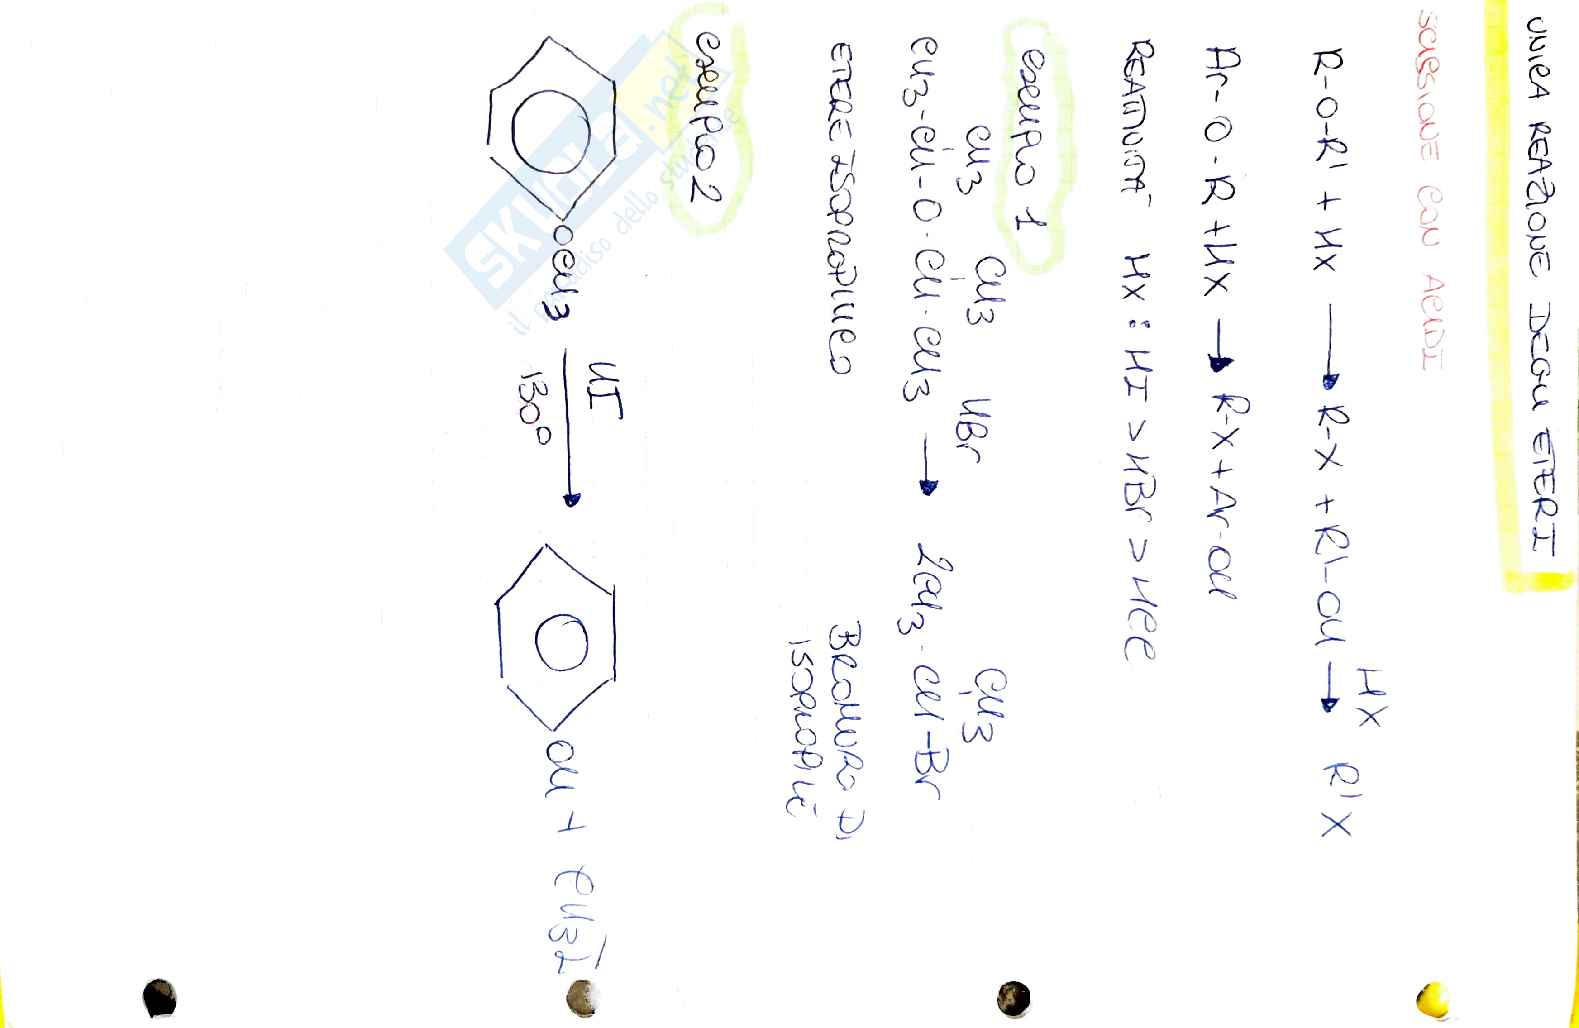 UNICA REAZIONE DEGLI ETERI
SCISSIONE CON ACIDI
R-O-R' + HX → R-X + R'-OH →HX R'X
Ar-O-R + HX → R-X + Ar-OH
REATTIVITÀ HX : HI > HBr > HCl
esempio 1
CH3 CH3 HBr CH3
CH3-CH-O-CH-CH3 → 2CH3-CH-Br
ETERE ISOPROPILICO BROMURO DI
ISOPROPILE
esempio 2
HI
OCH3 → OH + CH3I
130°
SKUOLA.net
il paradiso dello studente